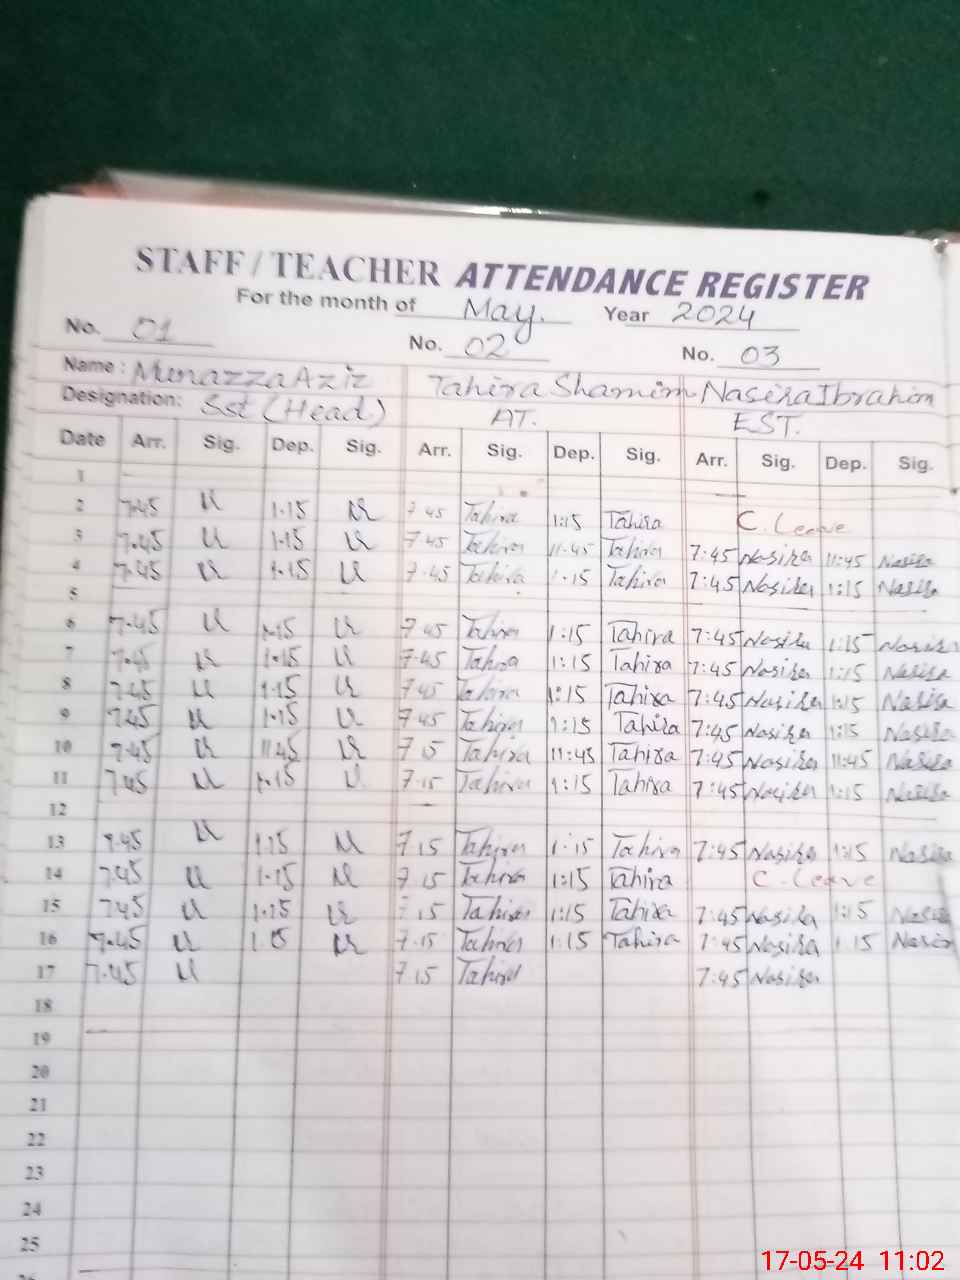 STAFF / TEACHER ATTENDANCE REGISTER
For the month of May. Year 2024
No. 01 No. 02 No. 03
Name : Munazza Aziz Tahira Shamim Nasira Ibrahim
Designation: Sst (Head) AT. EST.
Date Arr. Sig. Dep. Sig. Arr. Sig. Dep. Sig. Arr. Sig. Dep. Sig.
1
2 7.45 1.15 7 45 Tahira 1:15 Tahira C. Leave
3 7.45 1.15 7.45 Tahira 11.45 Tahira 7:45 Nasira 11:45 Nasira
4 7.45 1.15 7.45 Tahira 1.15 Tahira 7:45 Nasira 1:15 Nasira
5
6 7.45 1.15 7 45 Tahira 1:15 Tahira 7:45 Nasira 1:15 Nasira
7 7.45 1.15 7.45 Tahira 1:15 Tahira 7:45 Nasira 1:15 Nasira
8 7.45 1.15 7.45 Tahira 1:15 Tahira 7:45 Nasira 1:15 Nasira
9 7.45 1.15 7.45 Tahira 1:15 Tahira 7:45 Nasira 1:15 Nasira
10 7.45 11.45 7 15 Tahira 11:45 Tahira 7:45 Nasira 11:45 Nasira
11 7.45 1.15 7.15 Tahira 1:15 Tahira 7:45 Nasira 1:15 Nasira
12
13 7.45 1.15 7.15 Tahira 1:15 Tahira 7:45 Nasira 1:15 Nasira
14 7.45 1.15 7 15 Tahira 1:15 Tahira C. Leave
15 7.45 1.15 7 15 Tahira 1:15 Tahira 7:45 Nasira 1:15 Nasira
16 7.45 1.15 7.15 Tahira 1:15 Tahira 7:45 Nasira 1 15
17 7.45 7 15 Tahira 7:45 Nasira
18
19
20
21
22
23
24
25
17-05-24 11:02